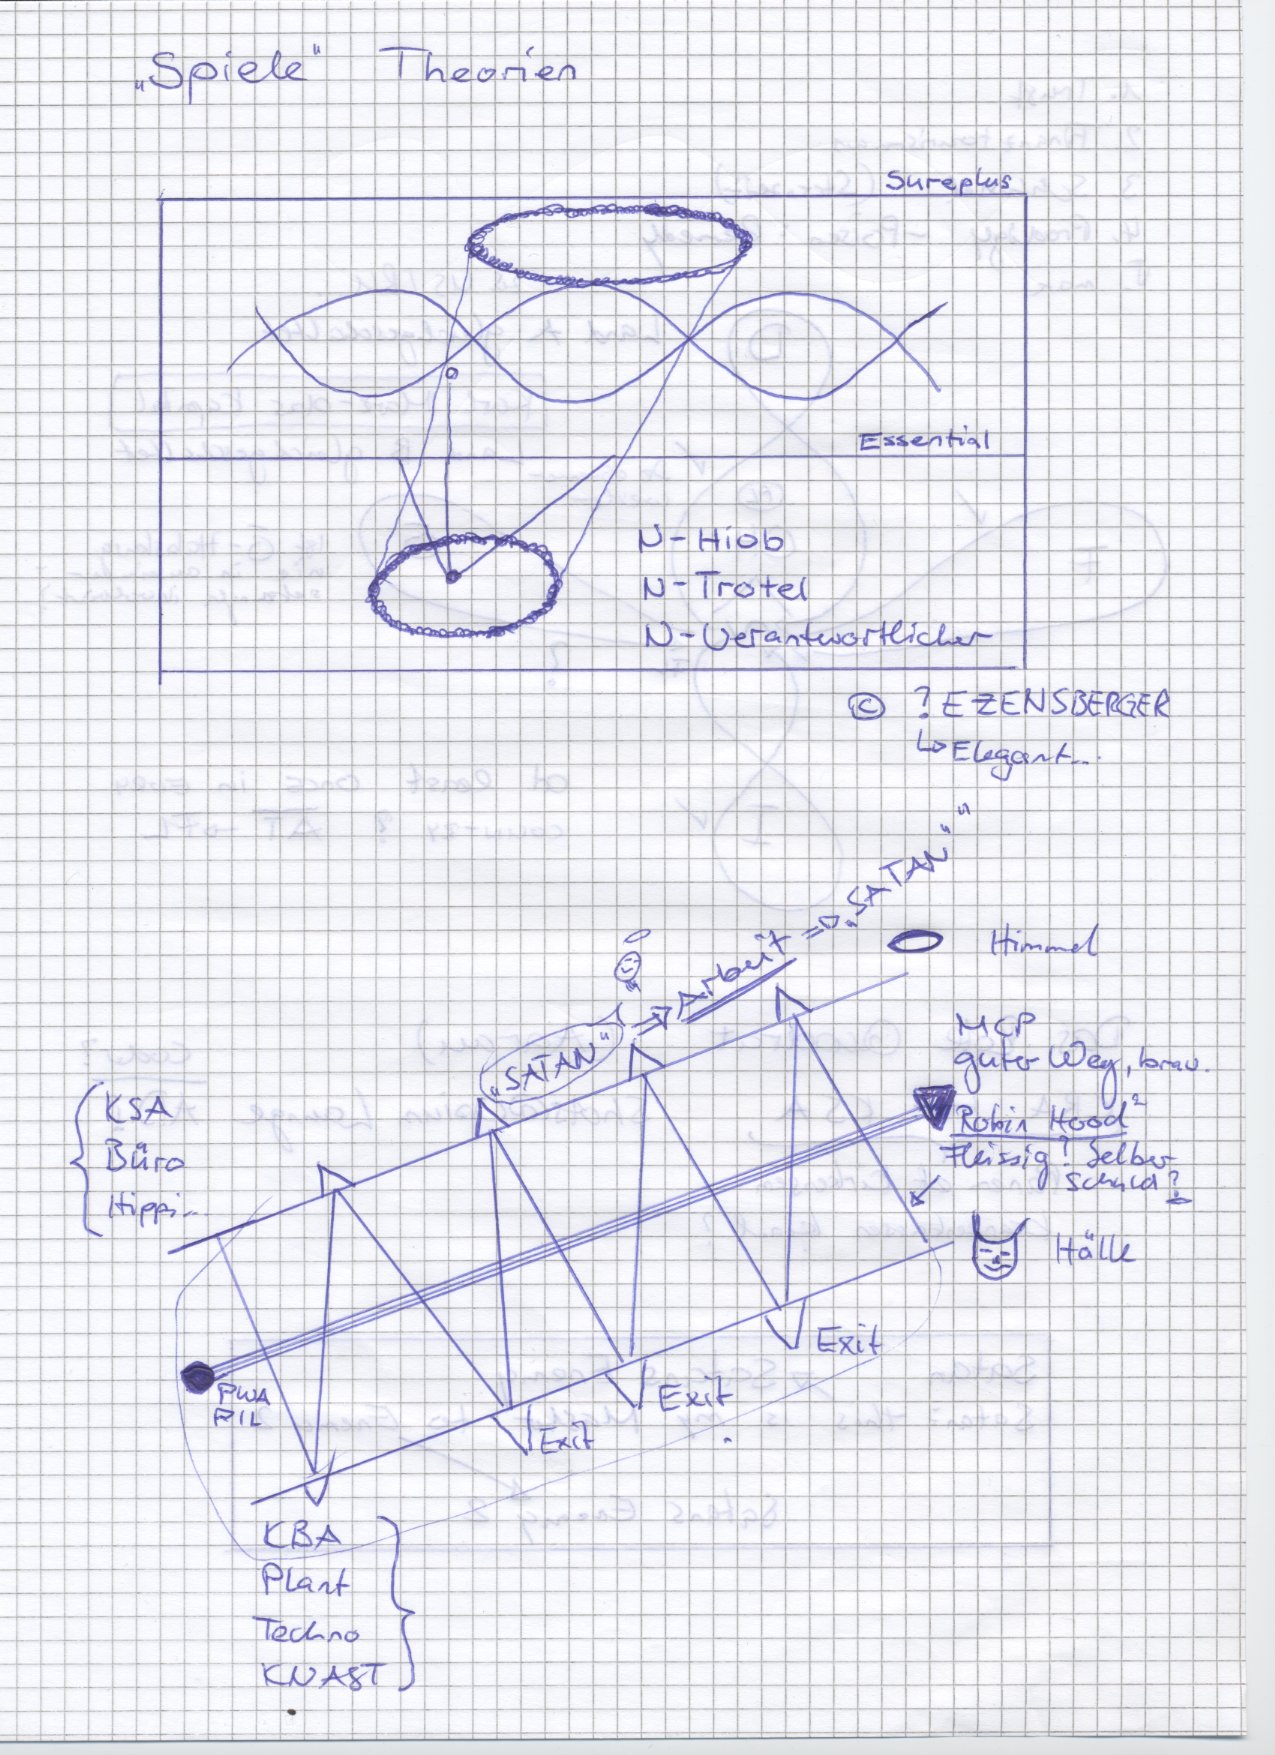 „Spiele" Theorien
Sureplus
Essential
N-Hiob
N-Trotel
N-Verantwortlicher
© ? EZENSBERGER
↳ Elegant...
„SATAN" ⇒ Arbeit ⇒ „SATAN"
Himmel
MCP
guter Weg, brav.
Robin Hood²
Fleissig? Selber
schuld?
KSA
Büro
Hippi...
Hälle
Exit
Exit
Exit
PWA
PIL
KBA
Plant
Techno
KNAST